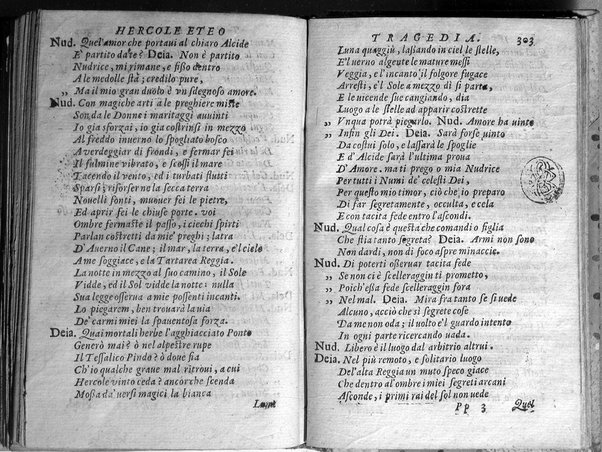 HERCOLE ETEO
Nud. Quel'amor che portaui al chiaro Alcide
E' partito da te? Deia. Non è partito
Nudrice, mi rimane, e fisso dentro
A le medolle stà; credilo pure,
„ Ma il mio gran duolo è vn sdegnoso amore.
Nud. Con magiche arti a le preghiere miste
Son da le Donne i maritaggi auuinti
Io già sforzai, io già costrinsi in mezzo
Al freddo inuerno lo spogliato bosco
A verdeggiar di frondi, e fermar fei
Il fulmine vibrato, e scossi il mare
Tacendo il vento, ed i turbati flutti
Sparsi; risorser ne la secca terra
Nouelli fonti, munuer fei le pietre,
Ed aprir fei le chiuse porte. voi
Ombre fermaste il passo, i ciechi spirti
Parlan costretti da mie' preghi; latra
D'Auerno il Cane; il mar, la terra, e'l cielo
A me soggiace, e la Tartarea Reggia.
La notte in mezzo al suo camino, il Sole
Vidde, ed il Sol vidde la notte: nulla
Sua legge osserua a miei possenti incanti.
Lo piegarem, ben trouarà la uia
De' carmi miei la spauentosa forza.
Deia. Quai mortali herbe l'agghiacciato Ponto
Generò mai? ò nel alpestre rupe
Il Tessalico Pindo? ò doue sia
Ch'io qualche graue mal ritroui, a cui
Hercole vinto ceda? ancorche scenda
Mossa da' uersi magici la bianca
Luna
TRAGEDIA. 303
Luna quaggiù, lassando in ciel le stelle,
E'l uerno algente le mature messi
Veggia, e l'incanto il folgore fugace
Arresti, e'l Sole a mezzo dì si parta,
E le uicende sue cangiando, dia
Luogo a le stelle ad apparir costrette
„ Vnqua potrà piegarlo. Nud. Amore ha uinto
„ Insin gli Dei. Deia. Sarà forse uinto
Da costui solo, e lassarà le spoglie
E d'Alcide sarà l'ultima proua
D'Amore. ma ti prego o mia Nudrice
Per tutti i Numi de' celesti Dei,
Per questo mio timor, ciò che io preparo
Di far segretamente, occulta, e cela
E con tacita fede entro l'ascondi.
Nud. Qual cosa è questa che comandi o figlia
Che stia tanto segreta? Deia. Armi non sono
Non dardi, non di foco aspre minaccie.
Nud. Di poterti osseruar tacita fede
„ Se non ci è scelleraggin ti prometto,
„ Poich' essa fede scelleraggin fora
„ Nel mal. Deia. Mira fra tanto se si uede
Alcuno, acciò che si segrete cose
Da me non oda; il uolto e'l guardo intento
In ogni parte ricercando uada.
Nud. Libero è il luogo dal arbitrio altrui.
Deia. Nel più remoto, e solitario luogo
Del'alta Reggia un muto speco giace
Che dentro al ombre i miei segreti arcani
Asconde, i primi rai del sol non uede
Pp 3 Quel